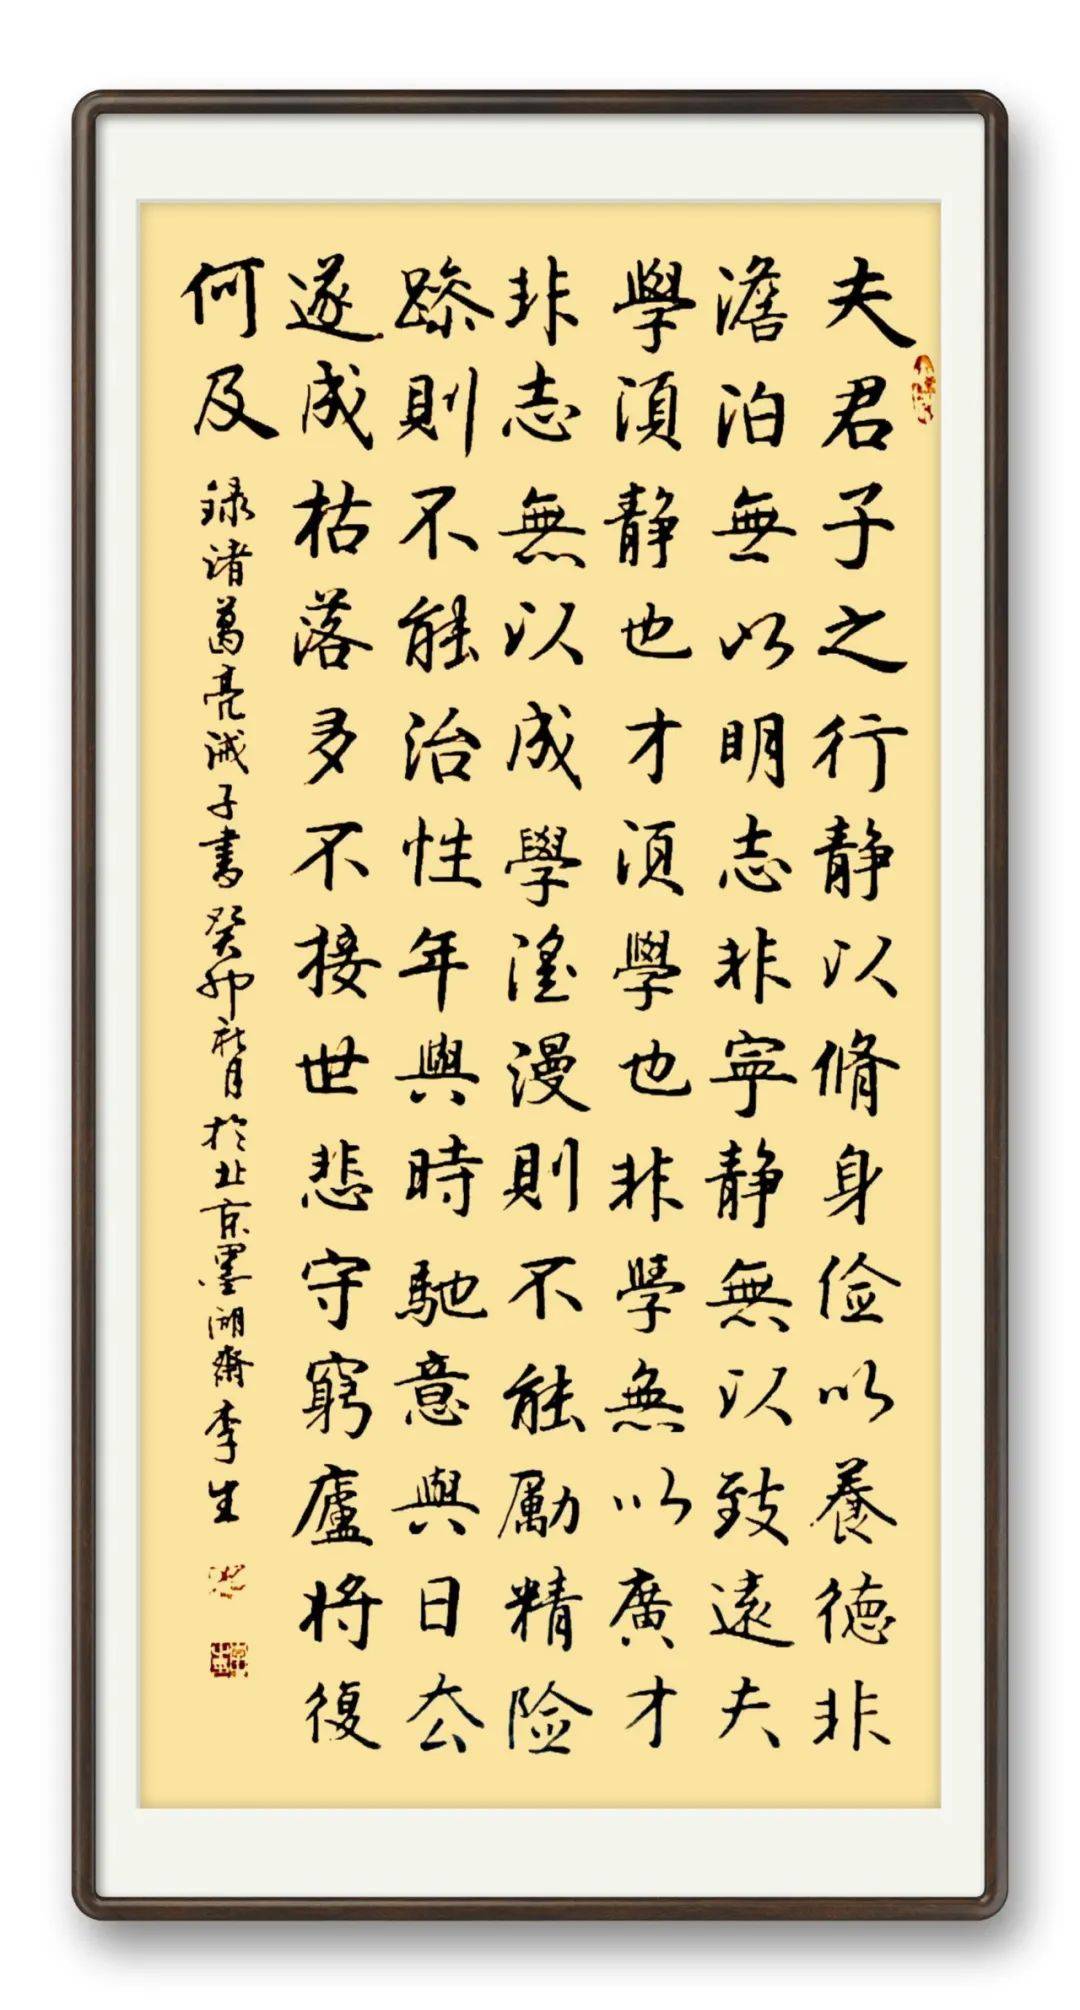 夫君子之行静以脩身俭以養德非
澹泊無以明志非寧静無以致遠夫
學須静也才須學也非學無以廣才
非志無以成學滛漫則不能勵精险
躁則不能治性年與時馳意與日去
遂成枯落多不接世悲守窮廬将復
何及
録诸葛亮诫子書癸卯秋月於北京墨湖齋李生